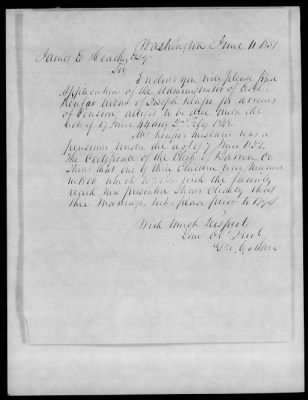 Washington June 11 1851
James E Heath Esq
Sir
Enclosed you will please find
application of the Administrator of
widow of Joseph for arrears
of Pension alleged to be due under the
17 June 44 and 2nd Feby 1848
Mr husband was a
pensioner under the act of 7 June 1832.
The Certificate of the Clerk of Co
Shows that one of their Children was married
in 1806 which together with the family
record now presented Shows Clearly that
the Marriage took place prior to 1794
With much Respect
Your Ob Servt
Geo.